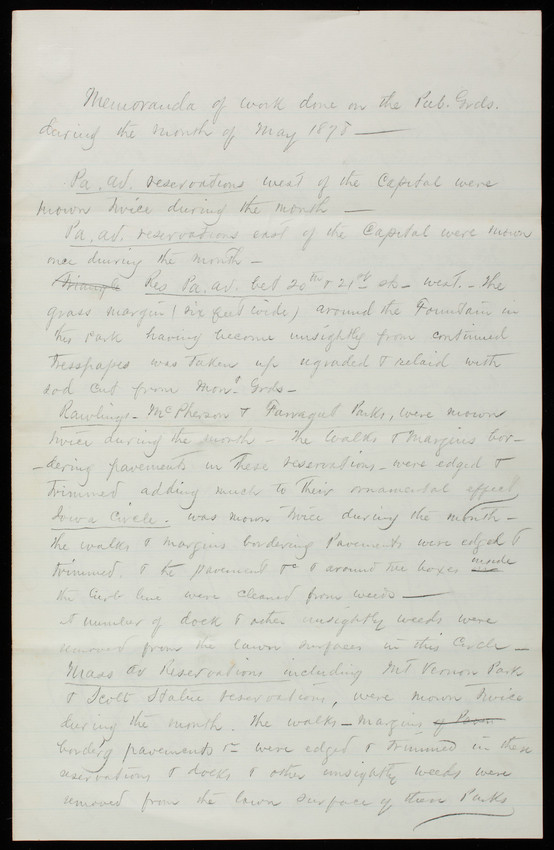 Memoranda of work done on the Pub. Grds.
during the month of May 1878 —
Pa. Av. reservations west of the Capitol were
mown twice during the month —
Pa. Av. reservations east of the Capitol were mown
once during the month —
Triangle Res Pa. Av. bet 20th & 21st sts - west. - The
grass margin (six feet wide) around the Fountain in
this park having become unsightly from continued
tresspapes was taken up ugraded & relaid with
sod cut from Mont. Grds —
Rawlings - McPherson & Farragut Parks, were mown
twice during the month - The walks & margins bor-
-dering pavements in these reservations - were edged &
trimmed adding much to their ornamental effect
Iowa Circle. was mown twice during the month -
the walks & margins bordering Pavements were edged &
trimmed. & the pavement &c & around tree boxes inside
the curb line were cleaned from weeds —
A number of dock & other unsightly weeds were
removed from the lawn surfaces in this Circle —
Mass Av Reservations including Mt Vernon Park
& Scott Statue reservations, were mown twice
during the month. The walks - margins of
border'g pavements &c were edged & trimmed in these
reservations & docks & other unsightly weeds were
removed from the lawn surface of these Parks